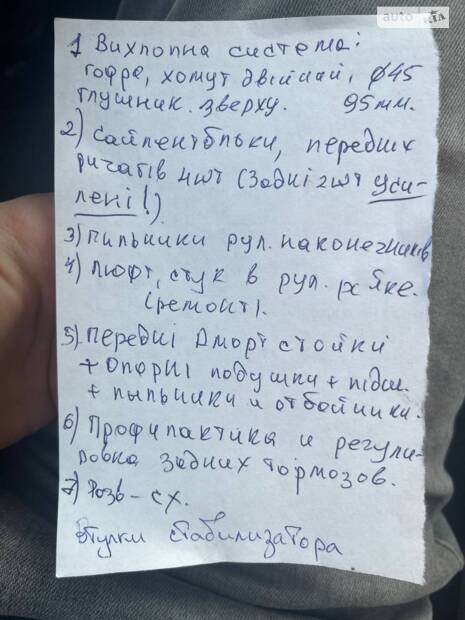 auto RIA
1 Вихлопна система:
гофра, хомут двійний, ø45
глушник. зверху. 95мм.
2) Сайлентблоки, передних
ричагів 4шт (Задні 2шт уси-
лені!)
3) Пильники рул. наконечників
4) Люфт, стук в рул. рєйке.
(ремонт).
5) Передні Аморт стойки
+ Опорні подушки + підш.
+ пыльники и отбойники.
6) Профилактика и регули-
ровка задних тормозов.
7) Розв-сх.
Втулки стабилизатора